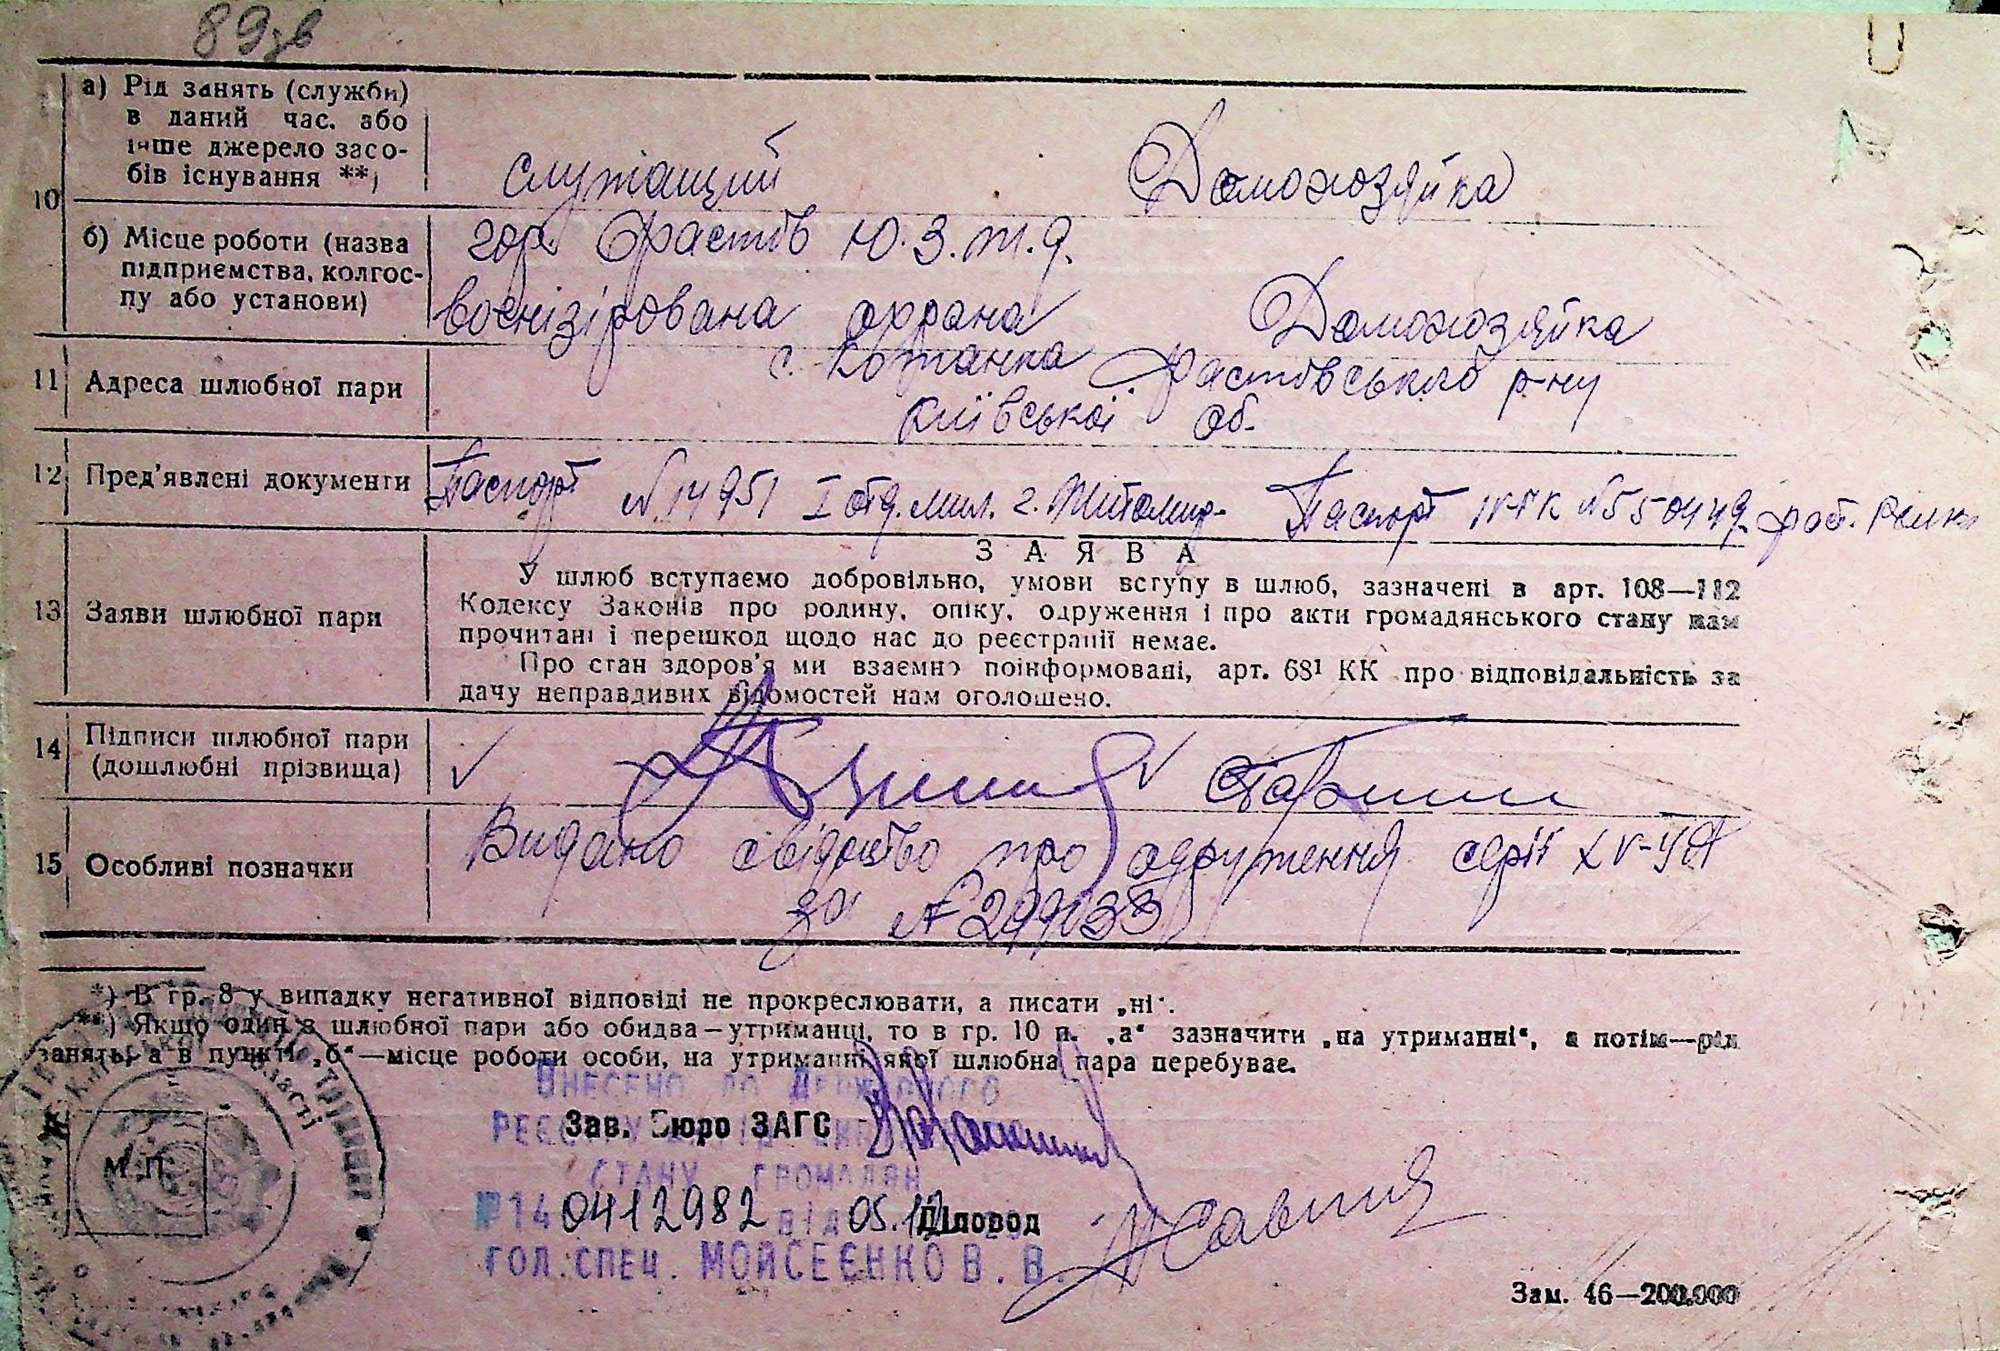 89зв
10
а) Рід занять (служби)
в даний час, або
інше джерело засо-
бів існування **)
служащий Домохозяйка
б) Місце роботи (назва
підприємства, колгос-
пу або установи)
гор. Фастов Ю.З.ж.д.
воєнізірована охрана Домохозяйка
11 Адреса шлюбної пари
с. Кожанка Фастовського р-ну
Київської об.
12 Пред'явлені документи
Паспорт №14951 I отд. мил. г. Житомир- Паспорт №550449
З А Я В А
13 Заяви шлюбної пари
У шлюб вступаємо добровільно, умови вступу в шлюб, зазначені в арт. 108—112
Кодексу Законів про родину, опіку, одруження і про акти громадянського стану нам
прочитані і перешкод щодо нас до реєстрації немає.
Про стан здоров'я ми взаємно поінформовані, арт. 68¹ КК про відповідальність за
дачу неправдивих відомостей нам оголошено.
14 Підписи шлюбної пари
(дошлюбні прізвища)
15 Особливі позначки
Видано свідоцтво про одруження серії XV-УА
за №299033
*) В гр. 8 у випадку негативної відповіді не прокреслювати, а писати „ні".
**) Якщо один з шлюбної пари або обидва—утриманці, то в гр. 10 п. „а" зазначити „на утриманні", а потім—рід
занять, а в пункті „б"—місце роботи особи, на утриманні якої шлюбна пара перебуває.
Внесено до Державного
Зав. Бюро ЗАГС
стану громадян
М.П.
№ 14 0412982 від 05.12
Діловод
гол. спец. Мойсеєнко В. В.
Зам. 46—200.000